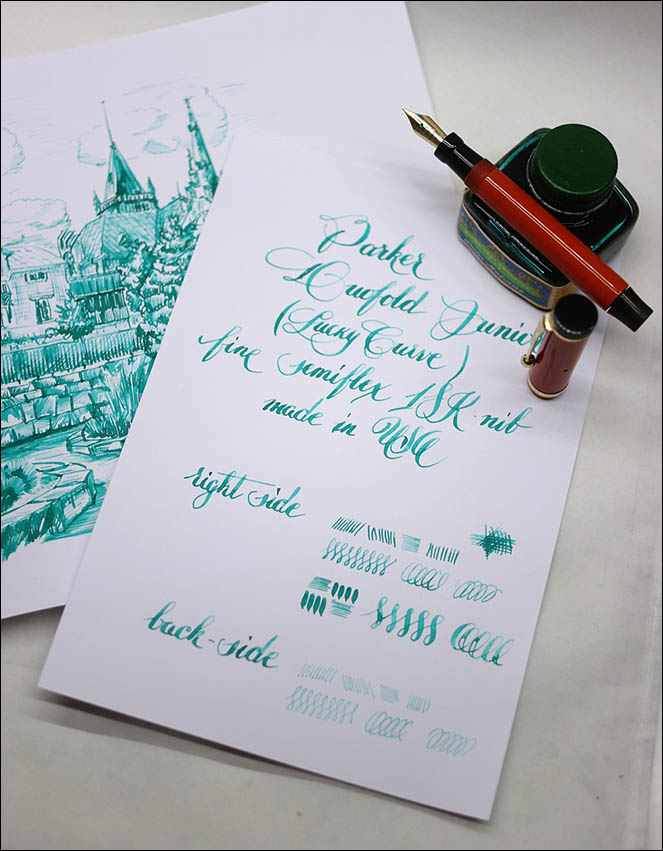 Parker
Duofold Junior
(Lucky Curve)
fine semiflex 18K nib
made in USA
right side
back-side